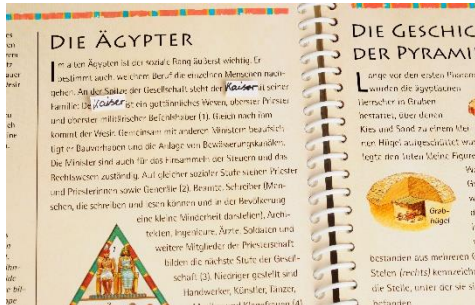 DIE ÄGYPTER
Im alten Ägypten ist der soziale Rang äußerst wichtig. Er
bestimmt auch, welchem Beruf die einzelnen Menschen nach-
gehen. An der Spitze der Gesellschaft steht der Kaiser mit seiner
Familie: Der Kaiser ist ein gottähnliches Wesen, oberster Priester
und oberster militärischer Befehlshaber (1). Gleich nach ihm
kommt der Vesir. Gemeinsam mit anderen Ministern beaufsich-
tigt er Bauvorhaben und die Anlage von Bewässerungskanälen.
Die Minister sind auch für das Einsammeln der Steuern und das
Rechtswesen zuständig. Auf gleicher sozialer Stufe stehen Priester
und Priesterinnen sowie Generäle (2). Beamte, Schreiber (Men-
schen, die schreiben und lesen können und in der Bevölkerung
eine kleine Minderheit darstellen), Archi-
tekten, Ingenieure, Ärzte, Soldaten und
weitere Mitglieder der Priesterschaft
bilden die nächste Stufe der Gesell-
schaft (3). Niedriger gestellt sind
Handwerker, Künstler, Tänzer,
DIE GESCHIC
DER PYRAMI
Lange vor den ersten Pharao
wurden die ägyptischen
Herrscher in Gruben
bestattet, über denen
Kies und Sand zu einem
nen Hügel aufgeschüttet
legte den toten kleine
Grab-
hügel
bestanden aus mehreren
Stelen (rechts)
die Stelle, unter der